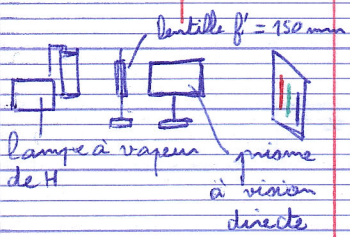 lentille f' = 150 mm
lampe à vapeur
de H
prisme
à vision
directe